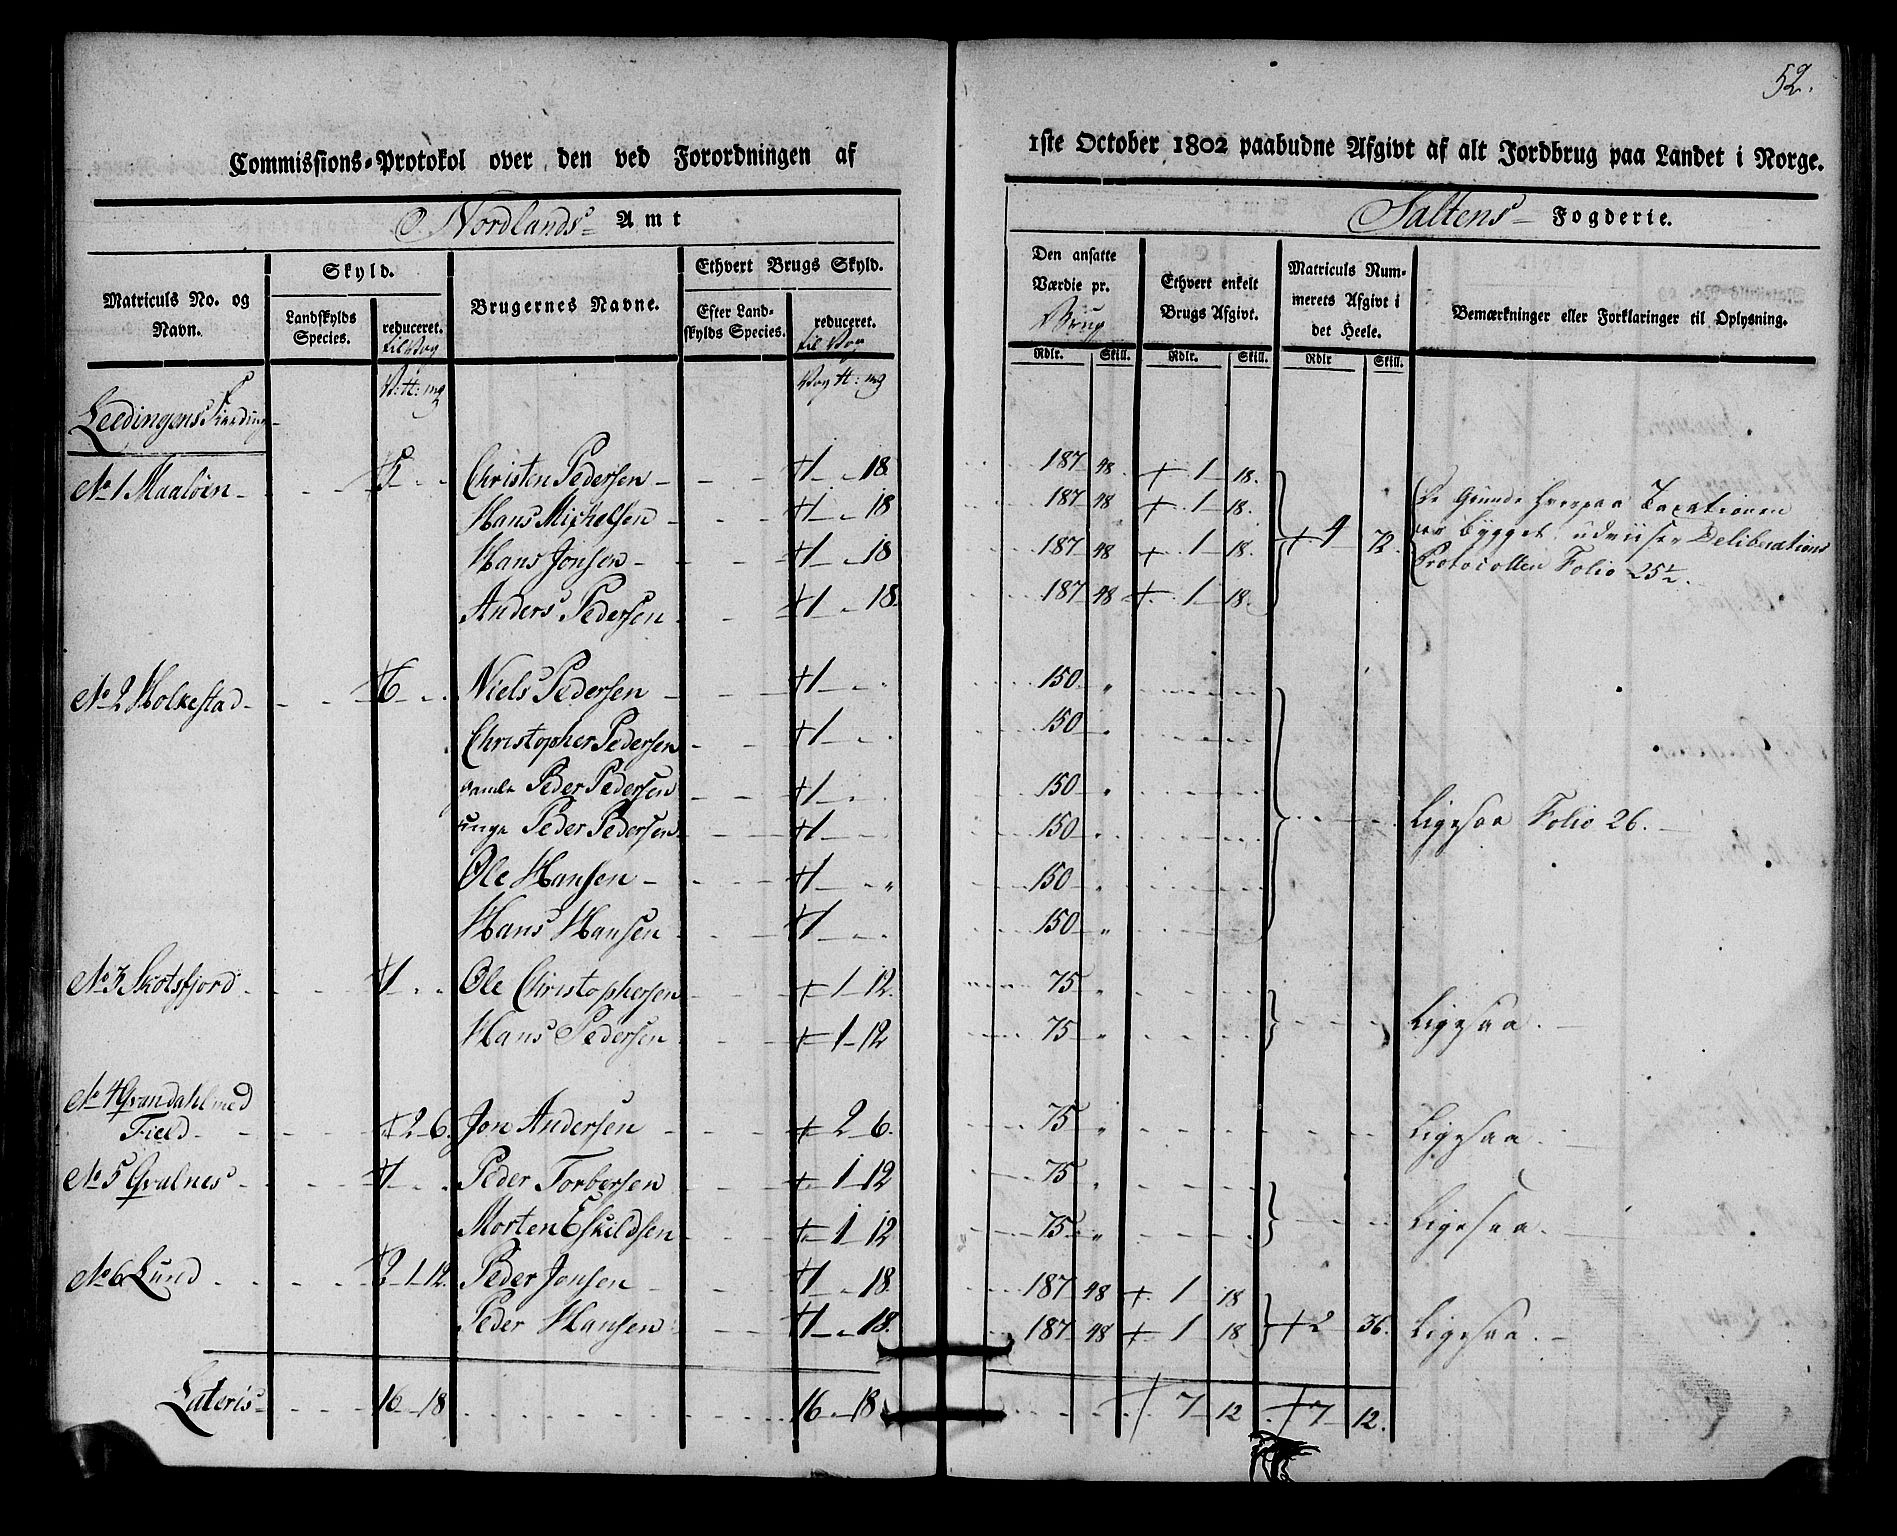 52.
Commissions-Protokol over den ved Forordningen af 1ste October 1802 paabudne Afgivt af alt Jordbrug paa Landet i Norge.
Nordlands Amt
Saltens Fogderie.
Matriculs No. og Navn.
Skyld.
Landskylds Species.
reduceret. til Vog
Brugernes Navne.
Ethvert Brugs Skyld.
Efter Landskylds Species.
reduceret. til Vog
Den ansatte Værdie pr. Brug
Ethvert enkelt Brugs Afgivt.
Matriculs Nummerets Afgivt i det Heele.
Bemærkninger eller Forklaringer til Oplysning.
Rdlr. Skill. Rdlr. Skill. Rdlr Skill.
Leedingens Fierding
No 1 Maaløen 5 Christen Pedersen 1 18 187 48 1 18
Hans Michelsen 1 18 187 48 1 18
Hans Jonsen 1 18 187 48 1 18
Anders Pedersen 1 18 187 48 1 18
4 72
De Grunde hvorpaa Taxationen
er bygget, udviiser Deliberations
Protocollen Folio 25½.
No 2 Holkestad 6 Niels Pedersen 1 150
Christopher Pedersen 1 150
gamle Peder Pedersen 1 150
unge Peder Pedersen 1 150 Ligesaa Folio 26.
Ole Hansen 1 150
Hans Hansen 1 150
No 3 Skotsfjord 1 Ole Christophersen 1 12 75
Hans Pedersen 1 12 75 Ligesaa.
No 4 Qvandahl med
Field 2 6 Jon Andersen 2 6 75 Ligesaa.
No 5 Qvalnes 1 Peder Torbersen 1 12 75
Morten Eskildsen 1 12 75 Ligesaa.
No 6 Lund 2 1 12 Peder Jonsen 1 18 187 48 1 18
Peder Hansen 1 18 187 48 1 18 2 36 Ligesaa.
Lateris 16 18 16 18 7 12 7 12